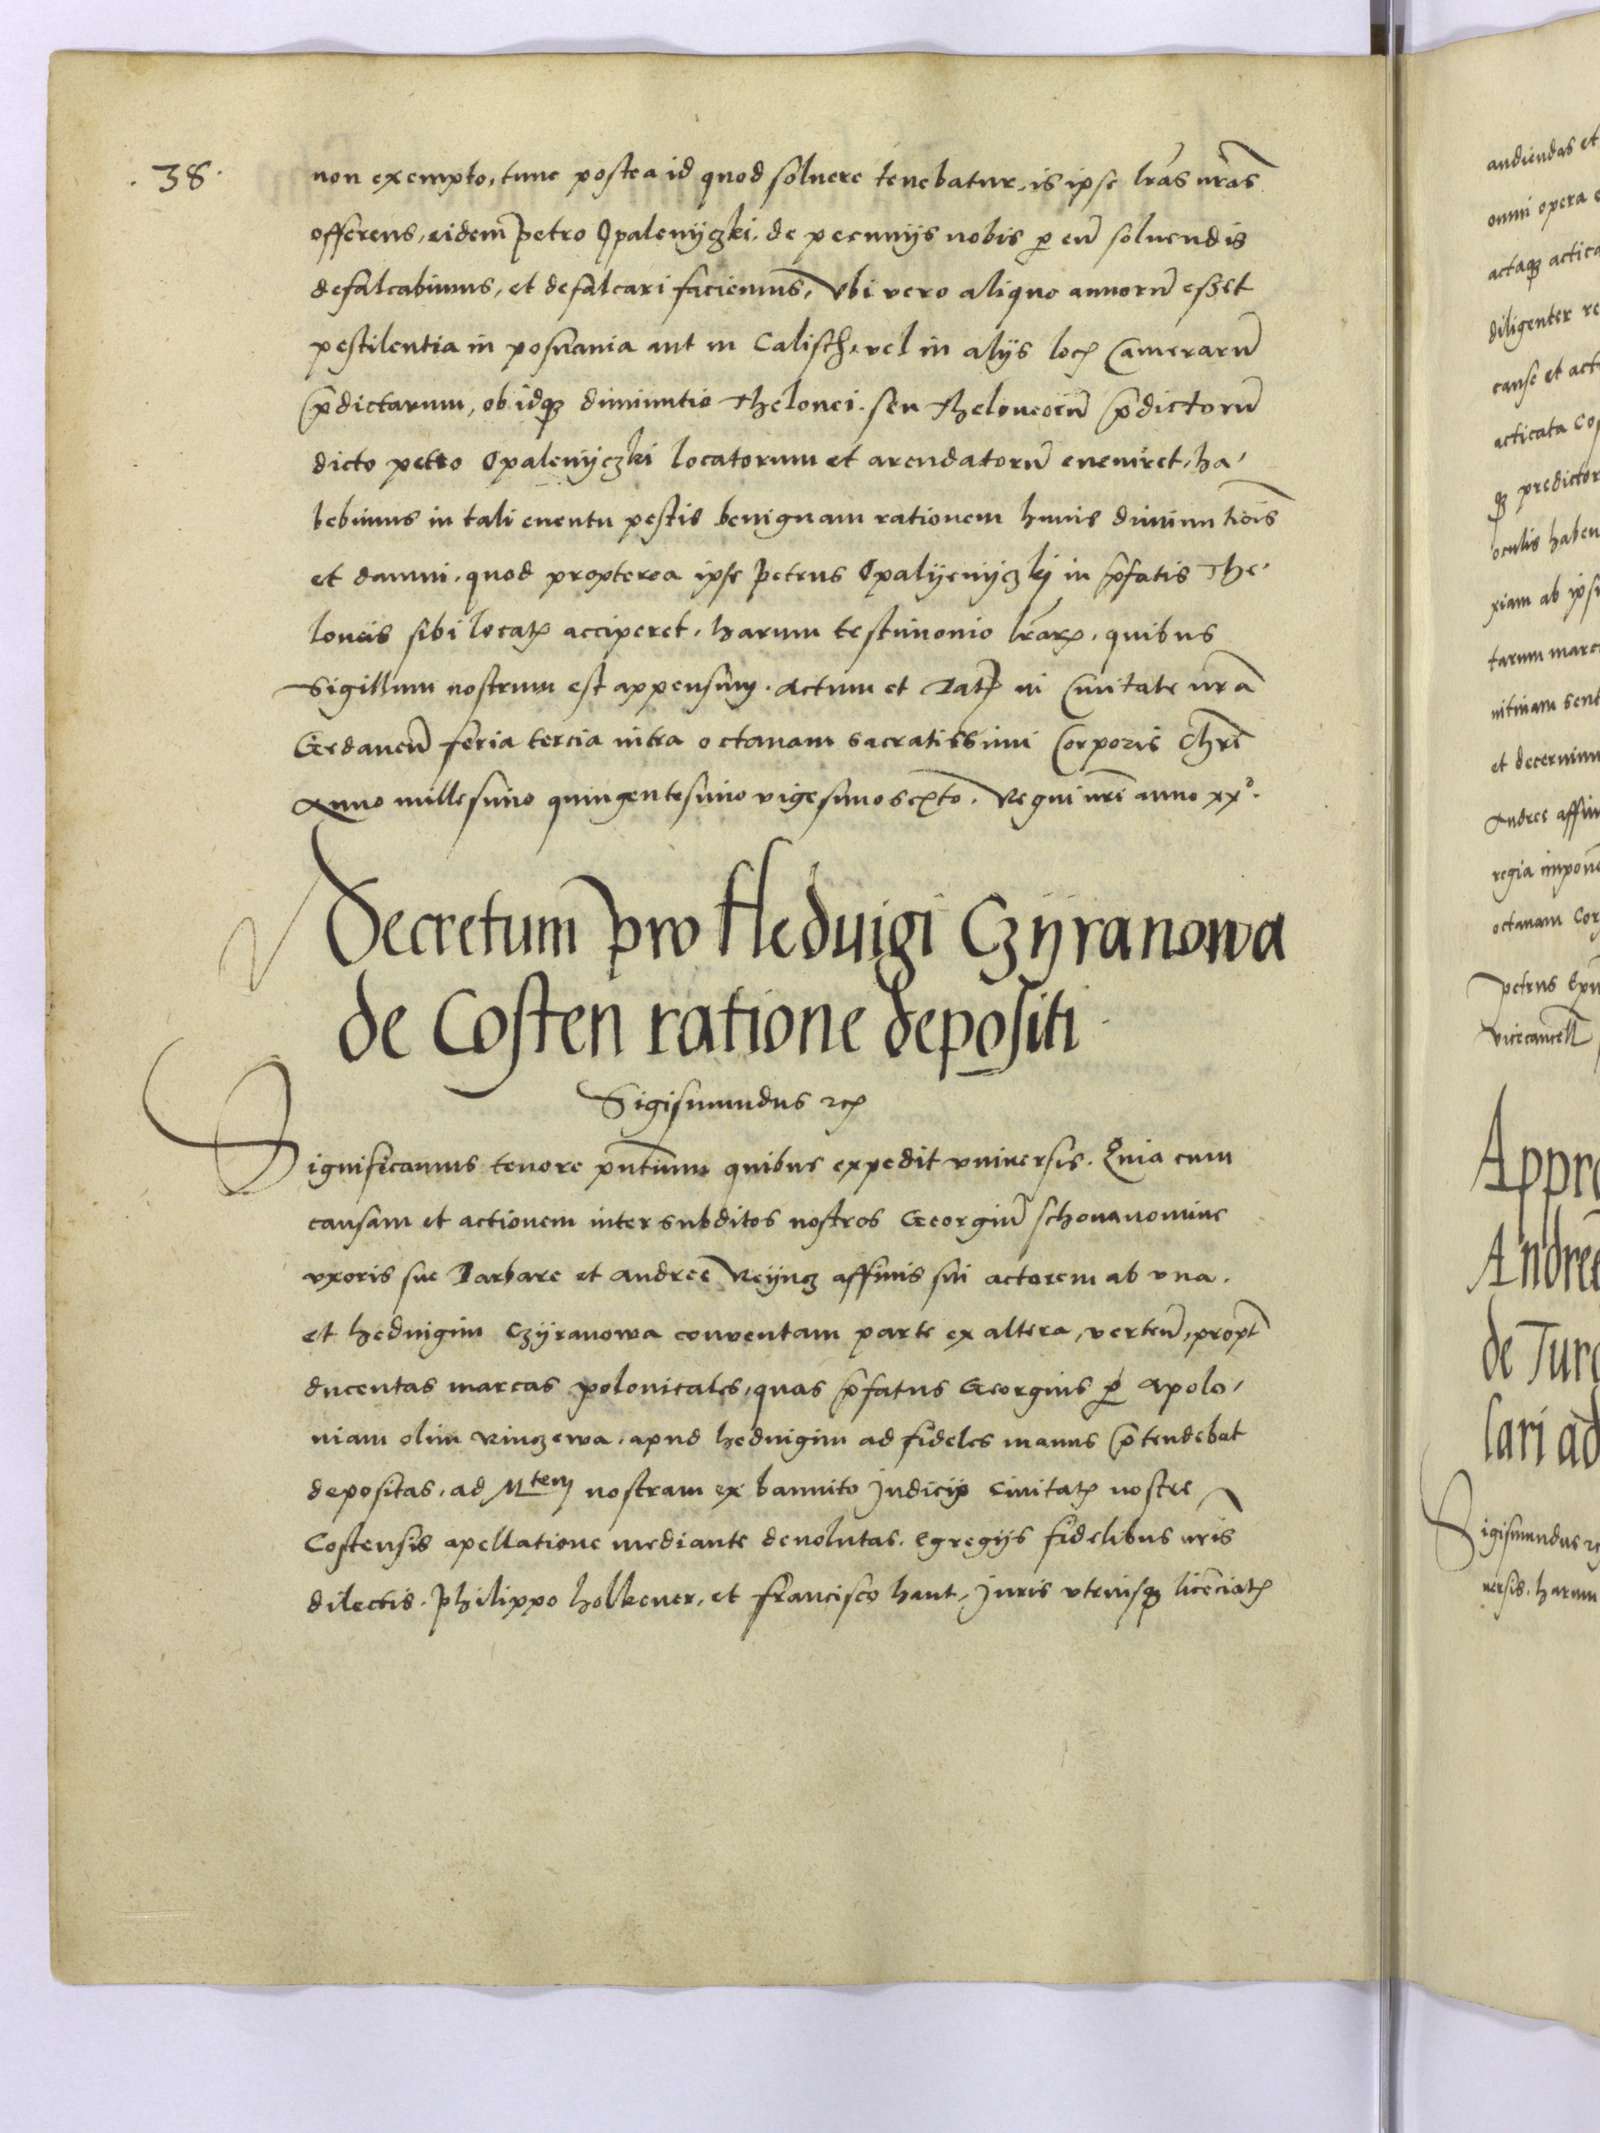 .38.
non exempto, tunc postea id quod soluere tenebatur, is ipse lras nras
offerens, eidem Petro Opalenyczki, de pecunijs nobis p eu soluendis
defalcabimus, et defalcari faciemus, Vbi vero aliquo annoru esset
pestilentia in posnania aut in Calisch, vel in alijs loc Cameraru
pdictarum, ob idq diminutio Thelonei seu Theloneoru pdictoru
dicto petro Opalenyczki locatorum et arendatoru eueniret, ha,
bebimus in tali euentu pestis benignam rationem huius diminutiois
et damni, quod propterea ipse Petrus Opalyenyczky in pfatis The,
loneis sibi locat acciperet, harum testimonio lrar, quibus
Sigillum nostrum est appensum. Actum et Dat in Ciuitate nra
Gedaneu feria tercia intra octauam sacratissimi Corporis Chri
Anno millesimo quingentesimo vigesimosexto. Regni nri anno xx°.
Decretum pro Heduigi Czyranowa
de Costen ratione depositi
Sigismundus rc
Significamus tenore pntium quibus expedit vniuersis. Quia cum
causam et actionem inter subditos nostros Georgiu schona nomine
vxoris sue Barbare et Andree Reyncz affinis sui actorem ab vna.
et heduigim Czyranowa conuentam parte ex altera, verteu, propt
ducentas marcas polonicales, quas pfatus Georgius p Apolo,
niam olim Rinczewa, apud heduigim ad fideles manus ptendebat
depositas, ad Mtem nostram ex bannito Judicio Ciuitat nostre
Costensis apellatione mediante deuolutas. Egregijs fidelibus nris
dilectis. Philippo holkener, et francisco hant, Juris vtriusq licenciat
audiendas et
omni opera
actaq actica
diligenter re
cause et act
acticata Co
q predictor
oculis haben
xiam ab ipsi
tarum marc
nitiuam sent
et decernim
Andree affin
regia impon
octauam Cor
Petrus
vicecancell
Appro
Andree
de Turo
lari ad
Sigismundus rc
uersis. harum